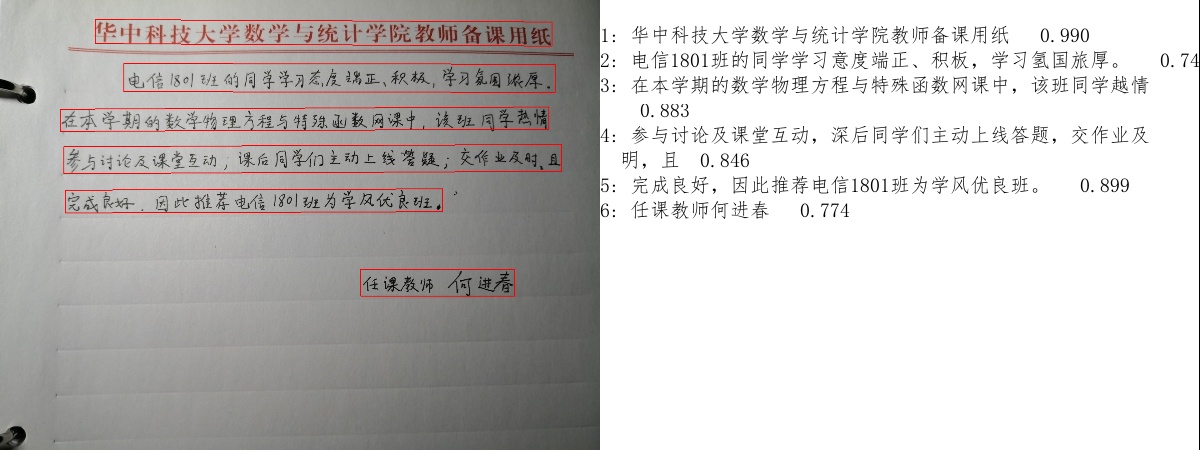 华中科技大学数学与统计学院教师备课用纸
电信1801班的同学学习态度端正、积极,学习氛围浓厚。
在本学期的数学物理方程与特殊函数网课中,该班同学热情
参与讨论及课堂互动,课后同学们主动上线答疑;交作业及时、且
完成良好,因此推荐电信1801班为学风优良班。
任课教师 何进春
1: 华中科技大学数学与统计学院教师备课用纸 0.990
2: 电信1801班的同学学习意度端正、积板,学习氢国旅厚。 0.74
3: 在本学期的数学物理方程与特殊函数网课中,该班同学越情
0.883
4: 参与讨论及课堂互动,深后同学们主动上线答题,交作业及
明,且 0.846
5: 完成良好,因此推荐电信1801班为学风优良班。 0.899
6: 任课教师何进春 0.774